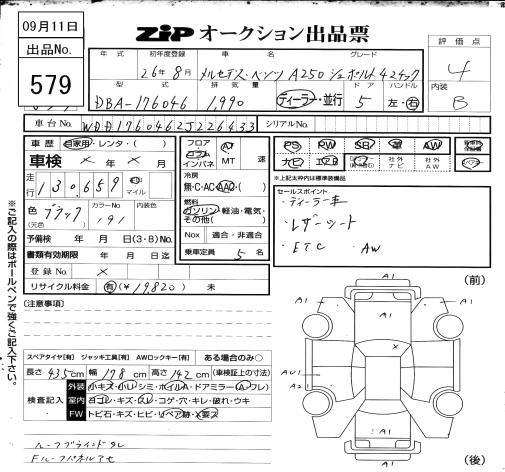 09月11日
出品No.
579
ZIP オークション出品票
年式 初年度登録 車名 グレード
26年8月 メルセデス・ベンツ A250 シュポルト 4マチック
型式 排気量 輸入車 ドア ハンドル
DBA-176046 1,990 ディーラー・並行 5 左・右
評価点
4
内装
B
車台No. WDD1760462J226433 シリアルNo.
車歴 自家用・レンタ・( )
車検 × 年 × 月
走行 130,659 km マイル
色 ブラック (元色) カラーNo. 191 内装色
予備検 年 月 日(3・8)No.
書類有効期限 年 月 日迄
登録No. ×
リサイクル料金 有(¥19,820) 未
フロア コラム インパネ AT MT 速
冷房
無・C・AC・AAC・( )
燃料
ガソリン・軽油・電気・その他( )
Nox 適合・非適合
乗車定員 5 名
PS PW SR 革 AW
ナビ 社外ナビ 社外AW
*上記太枠内は標準装備品
セールスポイント
・ディーラー車
・レザーシート
・ETC ・AW
※ご記入の際はボールペンで強くご記入下さい。
[注意事項]
スペアタイヤ[有] ジャッキ工具[有] AWロックキー[有] ある場合のみ○
長さ 435cm 幅 178cm 高さ 142cm (車検証上の寸法)
検査記入
外装 小キズ・小凹・シミ・ホイルA・ドアミラー(A・ワレ)
室内 ヨゴレ・キズ・スレ・コゲ・穴・キレ・破れ・ウキ
FW トビ石・キズ・ヒビ・リペア跡・X要ス
ルーフブラインドダレ
(前)
A1
A1 A1
A1
×
AU1
A2 A1
A1
A1
(後)